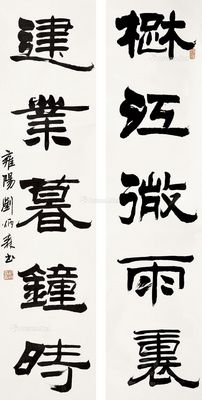 楚江微雨裏
建業暮鐘時
雍陽劉炳森書